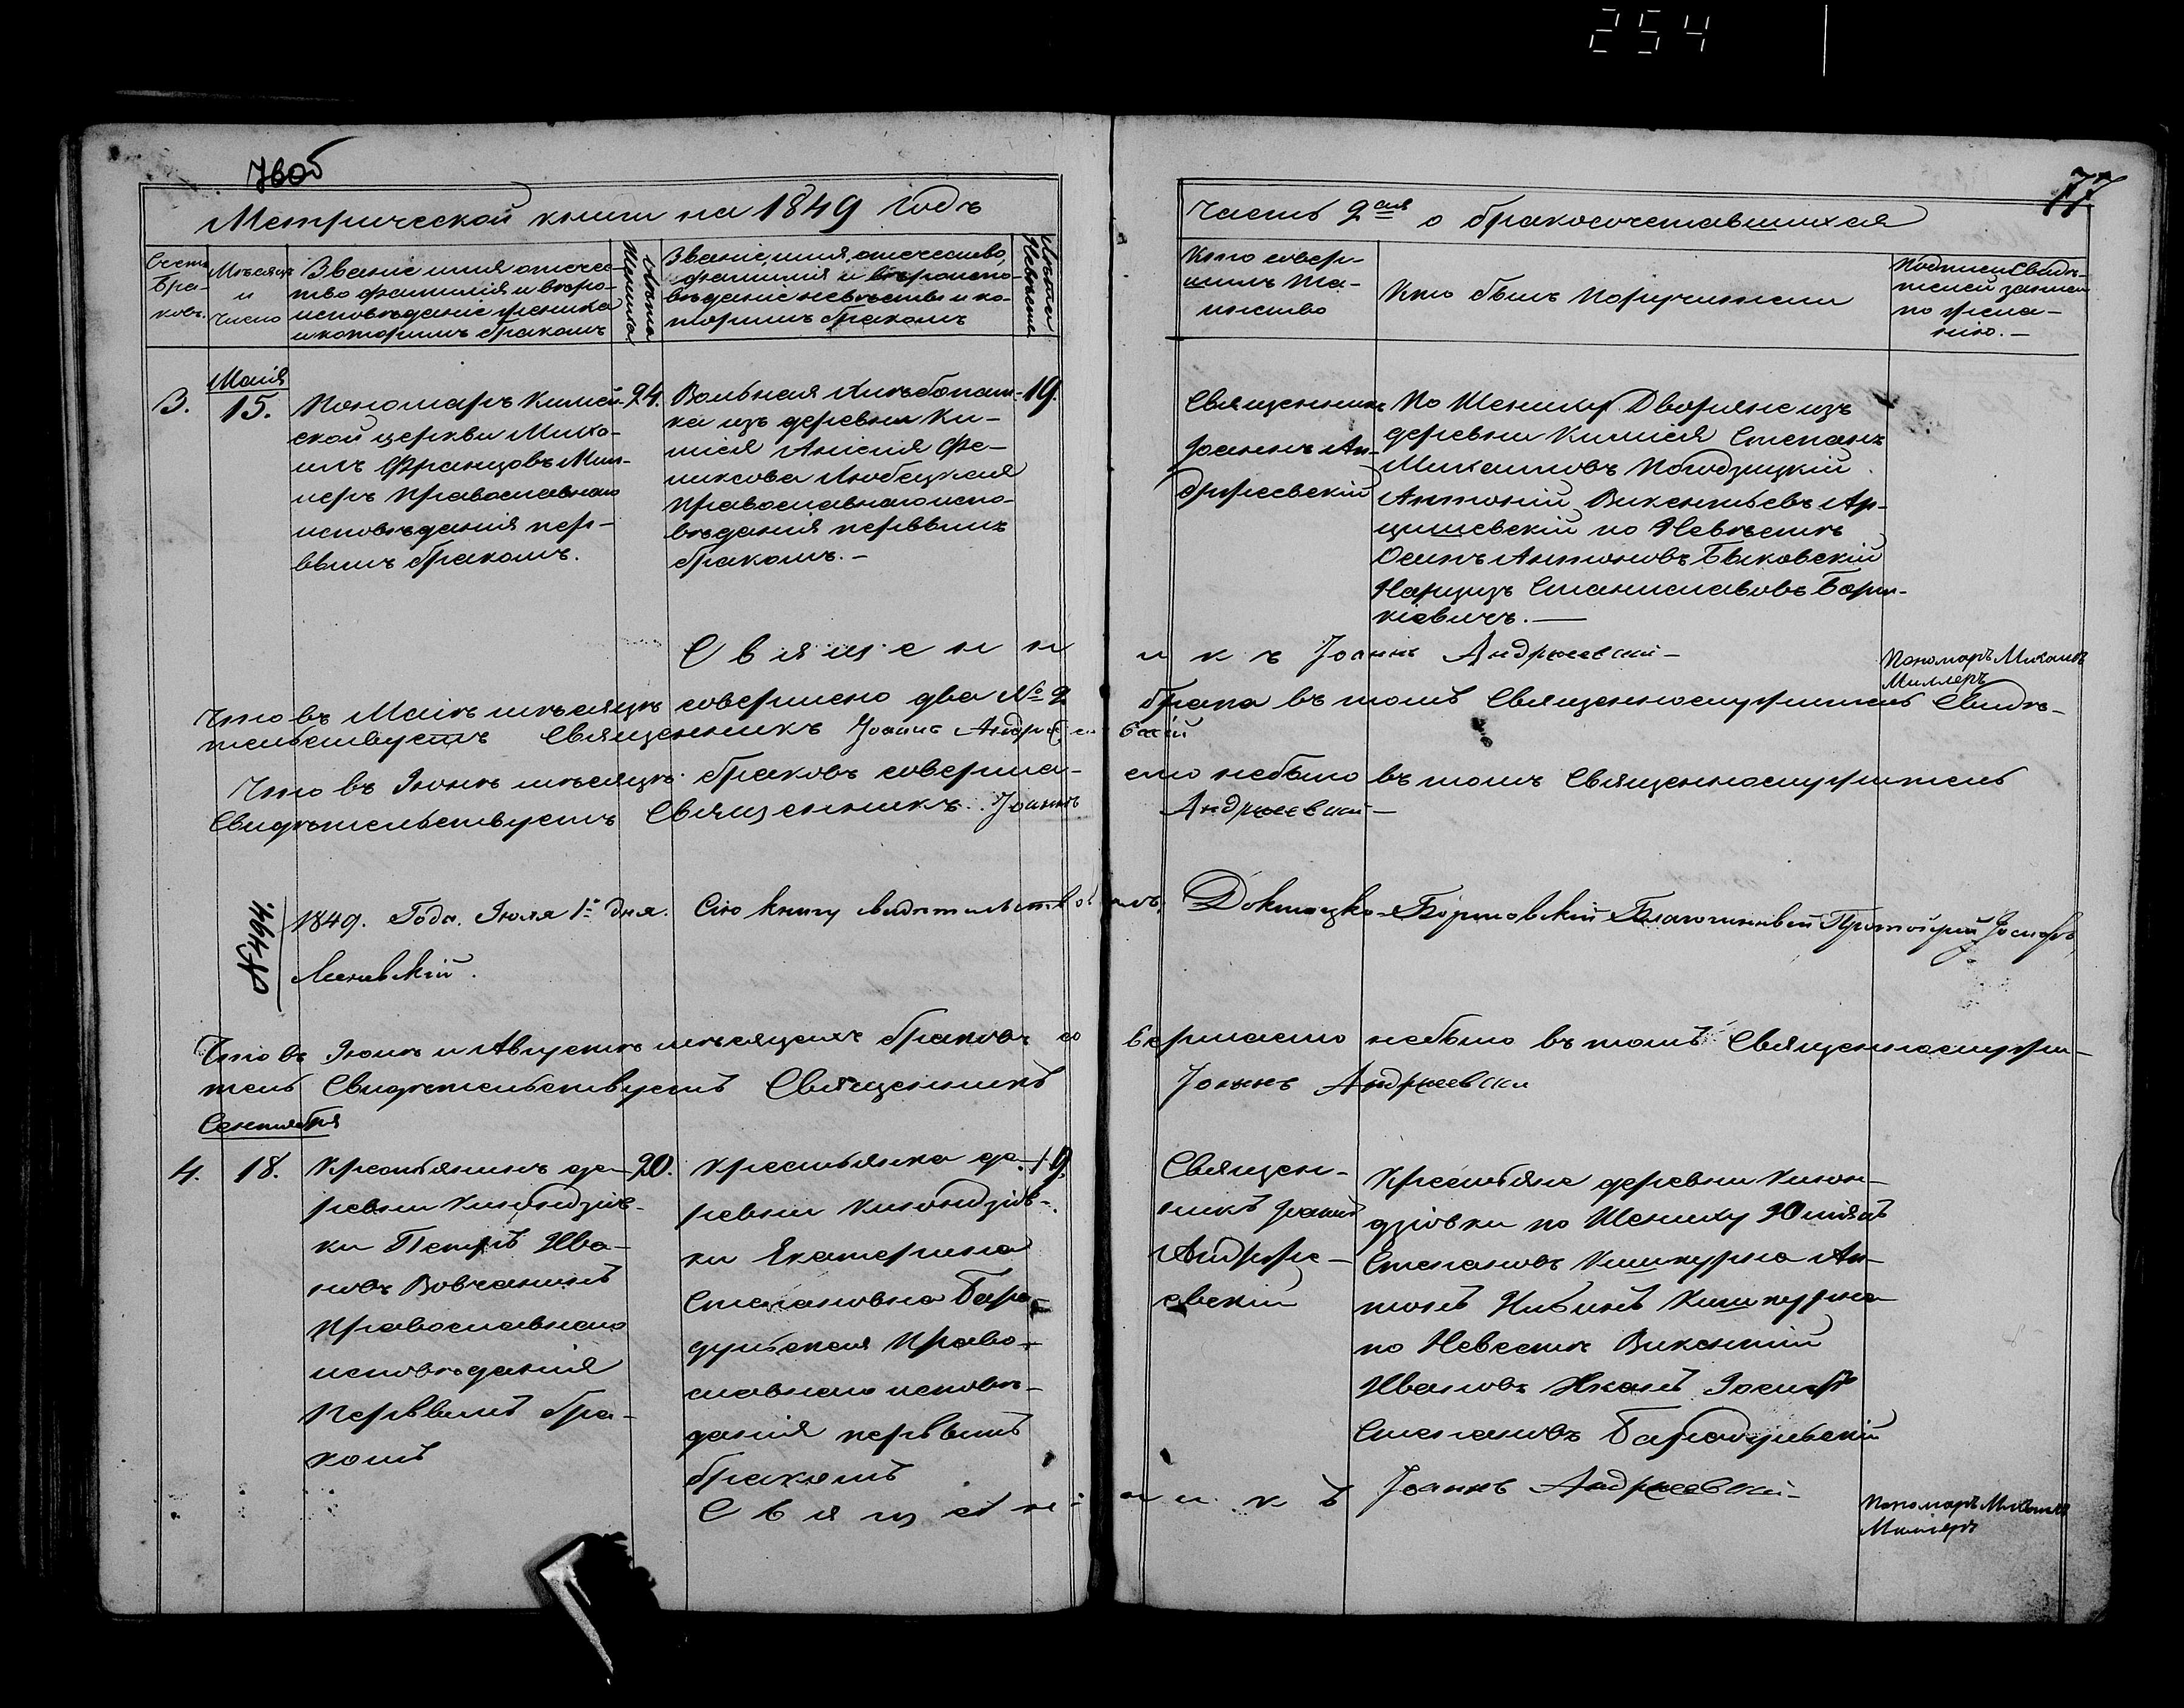 254
76об
77
Метрической книги на 1849 годъ
Часть 2ая о бракосочетавшихся
Счетъ
бра-
ковъ.
Мѣсяцъ
и
число
Званіе имя отече-
тво фамилія и вѣро-
исповѣданіе жениха
и которымъ бракомъ
Лѣта
Жениха
Званіе, имя, отечество,
фамилія и вѣроиспо-
вѣданіе невѣсты и ко-
торымъ бракомъ
Лѣта
Невѣсты
Кто совер-
шилъ та-
инство
Кто былъ поручителем
Подписи Свидѣ-
телей записи
по жела-
нію.—
Маія
3.
15.
Пономарь Кимей-
ской церкви Миха-
илъ Францовъ Мил-
леръ православнаго
исповѣданія пер-
вымъ бракомъ.
24.
Вольная хлѣбопаш-
ка изъ деревни Ки-
мiея Анелія Фе-
ликсова Любецкая
Православнаго испо-
вѣданія первымъ
бракомъ.—
19.
Священникъ
Іоаннъ Ан-
држеевскій
По Жениху Дворяне изъ
деревни Кимiея Степанъ
Михаиловъ
Антоній Викентьевъ Ар-
цишевскій по Невѣстѣ
Осипъ Антоновъ Быковскій
Нарцизъ Станиславовъ
Священникъ Іоаннъ Андржеевскій—
Пономарь Михаилъ
Миллеръ
Что въ Маіѣ мѣсяцѣ совершено два № 2 брака въ томъ Священнослужитель Свидѣ-
тельствуетъ Священникъ Іоаннъ Андржеевскій
Что въ Іюнѣ мѣсяцѣ браковъ совершаемо небыло въ томъ Священнослужитель
Свидѣтельствуетъ Священникъ Іоаннъ Андржеевскій—
№494.
1849. Года. Іюля 1го дня. Сію книгу свидѣтельствовалъ, Докшицко-Борисовскій Благочинный Протоіерей Іосифъ
Что въ Іюлѣ и Августѣ мѣсяцахъ браковъ совершаемо небыло въ томъ Священнослужи-
тель Свидѣтельствуетъ Священникъ Іоаннъ Андржеевскій
Сентября
4.
18.
Крестьянинъ де-
ревни
ки Петръ Ива-
новъ Вовчанинъ
Православнаго
исповѣданія
Первымъ бра-
комъ
20.
Крестьянка де-
ревни
ки Екатерина
Степановна Баро-
дульская Право-
славнаго исповѣ-
данія первымъ
бракомъ
19.
Священ-
никъ Іоаннъ
Андрже-
евскій
Крестьяне деревни
по Жениху Юліянъ
Степановъ Кишкурна Ан-
тонъ Кишкурна
по Невестѣ Викентій
Ивановъ Іосифъ
Степановъ Бародульскій
Священникъ Іоаннъ Андржеевскій—
Пономарь Михаилъ
Миллеръ